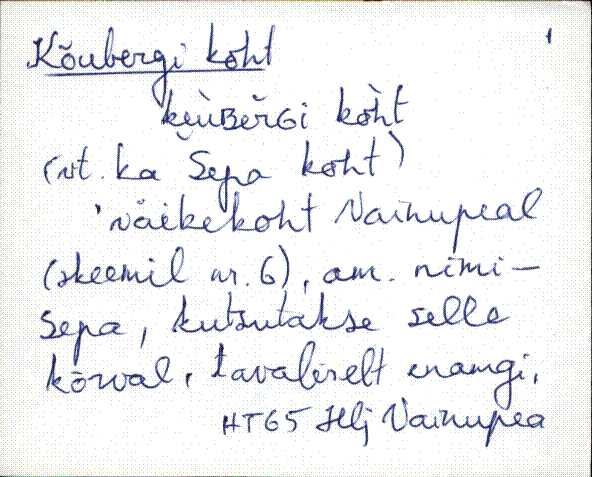 Kõubergi koht 1
ke̮ùʙèrɢi kòht
(vt. ka Sepa koht)
väikekoht Vainupeal
(skeemil nr. 6), am. nimi –
Sepa, kutsutakse selle
kõrval, tavaliselt enamgi.
HT65 Hlj Vainupea